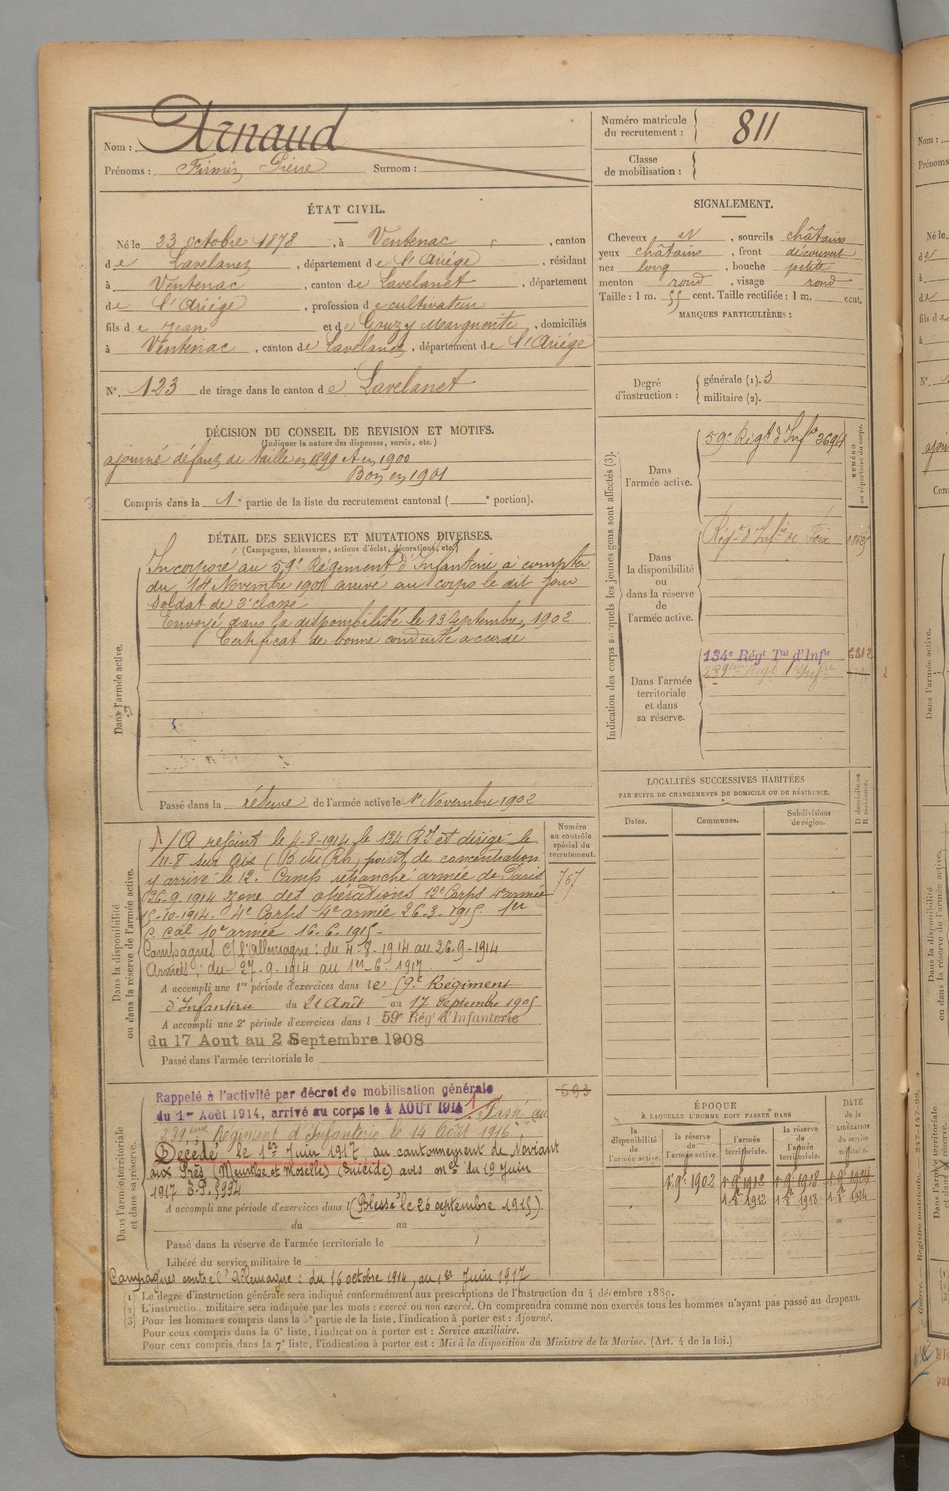 Nom : Arnaud
Prénoms : Firmin Pierre Surnom :
Numéro matricule du recrutement : 811
Classe de mobilisation :
ÉTAT CIVIL.
Né le 23 octobre 1878, à Ventenac, canton
de Lavelanet, département de l'Ariège, résidant
à Ventenac, canton de Lavelanet, département
de l'Ariège, profession de cultivateur
fils de Jean et de Gouzy Marguerite, domiciliés
à Ventenac, canton de Lavelanet, département de l'Ariège
N° 123 de tirage dans le canton de Lavelanet
SIGNALEMENT.
Cheveux sourcils châtains
yeux châtains, front découvert
nez long, bouche petite
menton rond, visage rond
Taille : 1 m. 55 cent. Taille rectifiée : 1 m. cent.
MARQUES PARTICULIÈRES :
Degré d'instruction : générale (1). 3
militaire (2).
DÉCISION DU CONSEIL DE REVISION ET MOTIFS.
(Indiquer la nature des dispenses, sursis, etc.)
ajourné défaut de taille en 1899 et en 1900
Bon en 1901
Compris dans la 1e partie de la liste du recrutement cantonal ( e portion).
DÉTAIL DES SERVICES ET MUTATIONS DIVERSES.
(Campagnes, blessures, actions d'éclat, décorations, etc.)
Dans l'armée active.
Incorporé au 59e Régiment d'Infanterie à compter
du 14 Novembre 1901 arrivé au corps le dit jour
Soldat de 2e classe
Envoyé dans la disponibilité le 13 Septembre 1902
Certificat de bonne conduite accordé
Passé dans la réserve de l'armée active le 1er Novembre 1902
Indication des corps auxquels les jeunes gens sont affectés (3).
NUMÉRO au répertoire du corps.
Dans l'armée active. 59e Régt d'Infie 3694
Dans la disponibilité ou dans la réserve de l'armée active. Régt d'Infie de Foix
Dans l'armée territoriale et dans sa réserve. 134e Régt Tal d'Infie
LOCALITÉS SUCCESSIVES HABITÉES
PAR SUITE DE CHANGEMENTS DE DOMICILE OU DE RÉSIDENCE.
D. domicile ou R. résidence.
Dates. Communes. Subdivisions de région.
Dans la disponibilité ou dans la réserve de l'armée active.
Numéro au contrôle spécial du recrutement.
767
A rejoint le 4-8-1914 le 134 R.I et dirigé le
11-8 sur Aix (B du Rh) point de concentration
y arrivé le 12. Camp retranché armée de Paris
26-9-1914 zone des opérations 12e Corps 4e armée
15-10-1914. 4e Corps 4e armée 26.3.1915. 1er
C. cal 10e armée 16.6.1915.
Campagnes C/ l'Allemagne : du 4-8-1914 au 26-9-1914
Armées ; du 27-9-1914 au 1er-6-1917
A accompli une 1re période d'exercices dans le 59e Régiment
d'Infanterie du 21 Août au 17 Septembre 1905
A accompli une 2e période d'exercices dans l 59e Régt d'Infanterie
du 17 Aout au 2 Septembre 1908
Passé dans l'armée territoriale le
Dans l'armée territoriale et dans sa réserve.
Rappelé à l'activité par décret de mobilisation générale 693
du 1er Août 1914, arrivé au corps le 4 AOUT 1914. Passé au
Régiment d'Infanterie le 14 Août 1916.
Décédé le 1er Juin 1917 au cantonnement de Noviant
aux Prés (Meurthe et Moselle) (Suicide) avis mel du 19 Juin
1917
A accompli une période d'exercices dans l (Blessé le 26 septembre 1915)
du au
Passé dans la réserve de l'armée territoriale le
Libéré du service militaire le
Campagnes contre l'Allemagne : du 16 octobre 1914, au 1er Juin 1917
ÉPOQUE
À LAQUELLE L'HOMME DOIT PASSER DANS
DATE de la LIBÉRATION du service militaire.
la disponibilité de l'armée active. la réserve de l'armée active. l'armée territoriale. la réserve de l'armée territoriale.
1er 9bre 1902 1er 9bre 1912 1er 9bre 1918 1er 9bre 1924
1er 8bre 1912 1er 8bre 1918 1er 8bre 1924
(1) Le degré d'instruction générale sera indiqué conformément aux prescriptions de l'Instruction du 4 décembre 1889.
(2) L'instruction militaire sera indiquée par les mots : exercé ou non exercé. On comprendra comme non exercés tous les hommes n'ayant pas passé au drapeau.
(3) Pour les hommes compris dans la 5e partie de la liste, l'indication à porter est : Ajourné.
Pour ceux compris dans la 6e liste, l'indication à porter est : Service auxiliaire.
Pour ceux compris dans la 7e liste, l'indication à porter est : Mis à la disposition du Ministre de la Marine. (Art. 4 de la loi.)